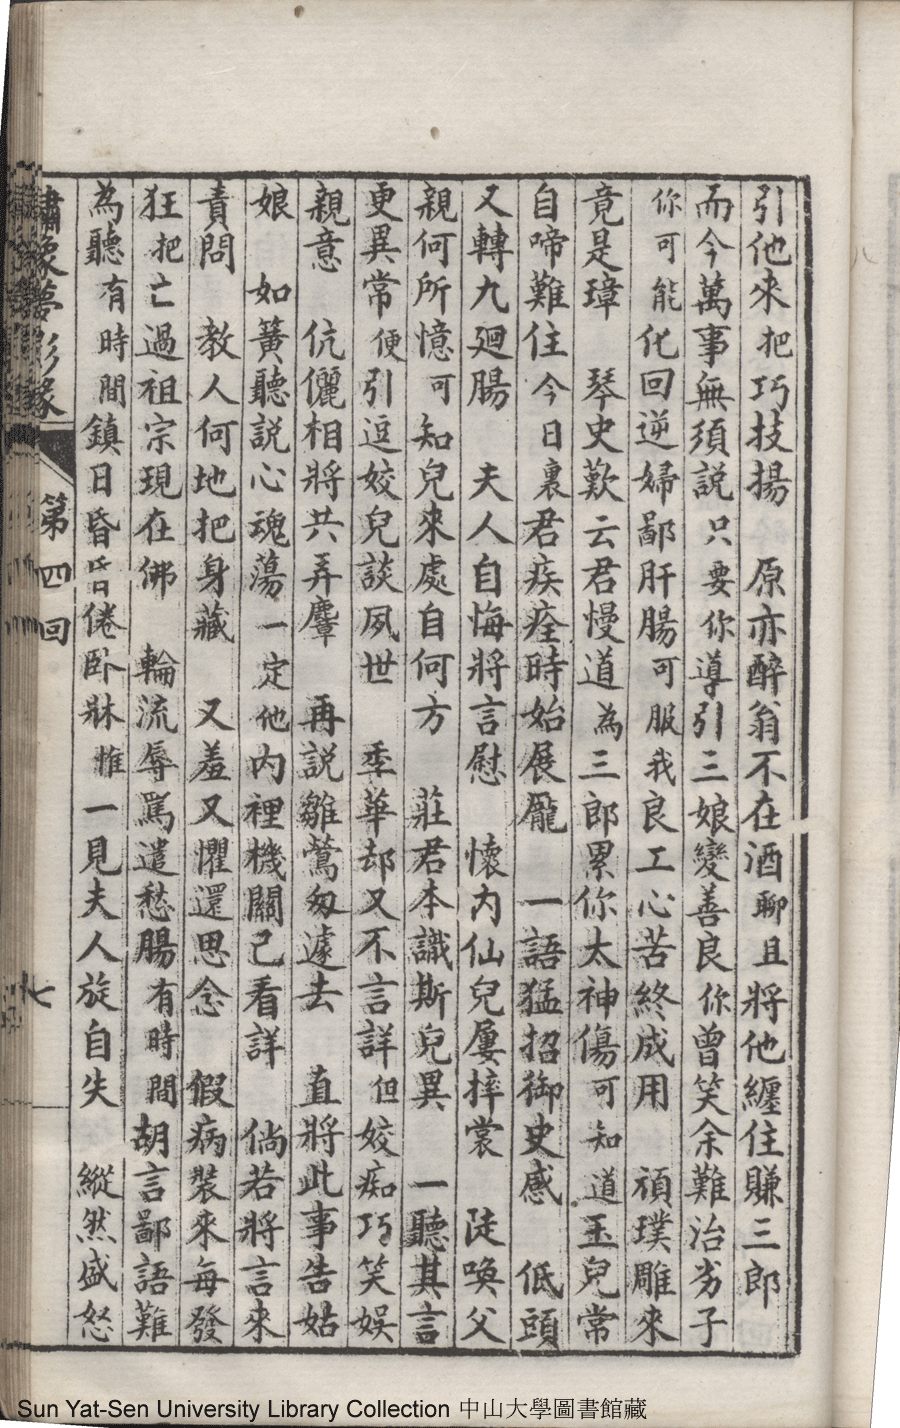 引他來把巧技揚　原亦醉翁不在酒聊且將他纏住賺三郎
而今萬事無須說只要你導引三娘變善良你曾笑余難治劣子
你可能化回逆婦鄙肝腸可服我良工心苦終成用　頑璞雕來
竟是璋　琴史歎云君慢道為三郎累你太神傷可知道玉兒常
自啼難住今日裏君疾痊時始展龐　一語猛招御史感　低頭
又轉九廻腸　夫人自悔將言慰　懷內仙兒屢捽裳　陡喚父
親何所憶可知兒來處自何方　莊君本識斯兒異　一聽其言
更異常便引逗姣兒談夙世　季華却又不言詳但姣痴巧笑娛
親意　伉儷相將共弄麞　再說雛鶯匆遽去　直將此事告姑
娘　如簧聽説心魂蕩一定他內裡機關已看詳　倘若將言來
責問　教人何地把身藏　又羞又懼還思念　假病裝來每發
狂把亡過祖宗現在佛　輪流辱罵遣愁腸有時間胡言鄙語難
為聽有時間鎮日昏昏倦臥牀惟一見夫人旋自失　縱然盛怒
繡像夢影緣　第四回　七
Sun Yat-Sen University Library Collection 中山大學圖書館藏